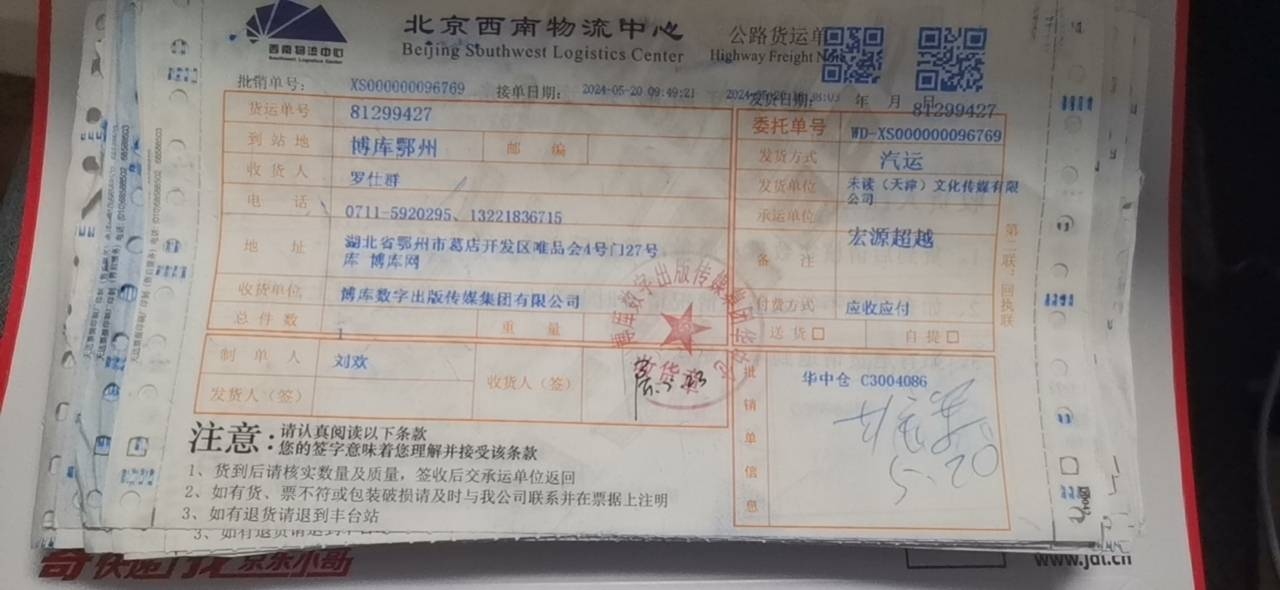 西南物流中心
Southwest Logistics Center
北京西南物流中心
Beijing Southwest Logistics Center
公路货运单
Highway Freight Note
批销单号: XS000000096769 接单日期: 2024-05-20 09:49:21 发货日期: 年 月 日
81299427
货运单号 81299427
委托单号 WD-XS000000096769
到站地 博库鄂州 邮编
发货方式 汽运
收货人 罗仕群
发货单位 未读（天津）文化传媒有限公司
电话 0711-5920295、13221836715
承运单位 宏源超越
地址 湖北省鄂州市葛店开发区唯品会4号门27号
库 博库网
备注
收货单位 博库数字出版传媒集团有限公司
付费方式 应收应付
总件数 1 重量
送货□ 自提□
制单人 刘欢
收货人（签）
发货人（签）
批销单信息
华中仓 C3004086
5.20
第二联：回执联
注意:
请认真阅读以下条款
您的签字意味着您理解并接受该条款
1、货到后请核实数量及质量，签收后交承运单位返回
2、如有货、票不符或包装破损请及时与我公司联系并在票据上注明
3、如有退货请退到丰台站
3、如有退货请退到丰台
京东小哥
www.jdl.cn